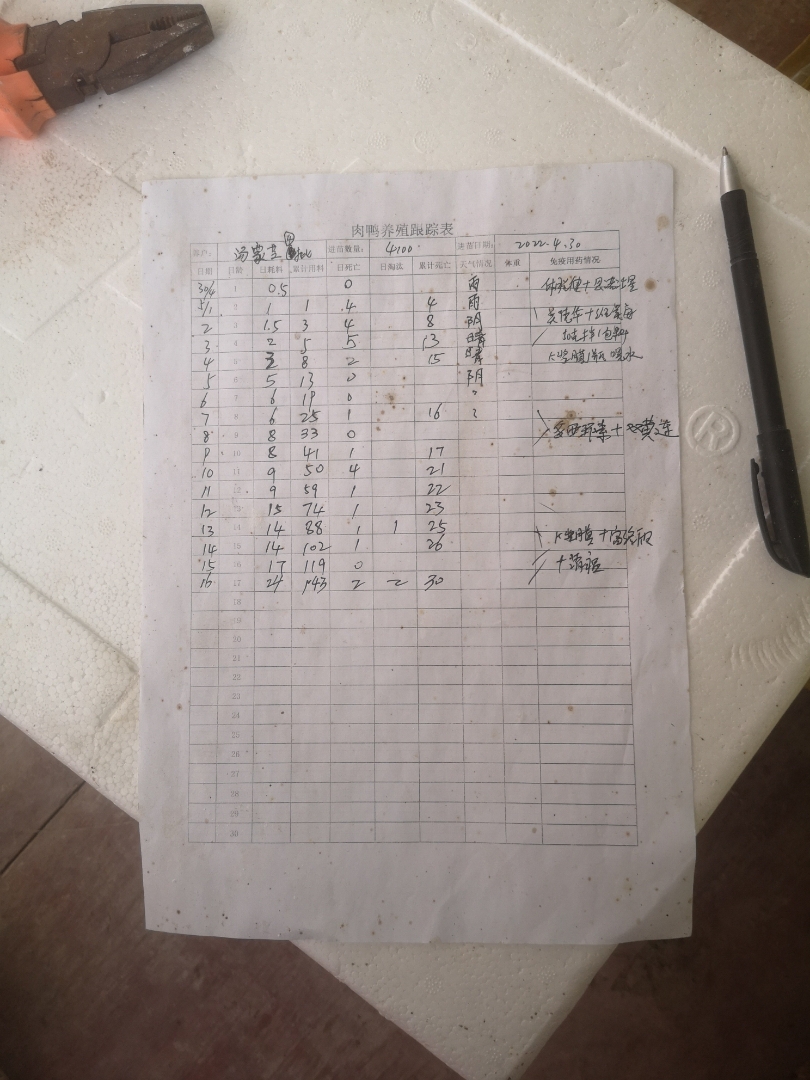 肉鸭养殖跟踪表
客户: 汤蒙芝 进苗数量: 4100 进苗日期: 2022.4.30
日期 日龄 日耗料 累计用料 日死亡 日淘汰 累计死亡 天气情况 体重 免疫用药情况
30/4 1 0.5 0 雨
5/1 2 1 1 4 4 雨
2 3 1.5 3 4 8 阴
3 4 2 5 5 13 晴
4 5 3 8 2 15 晴
5 6 5 13 0 阴
6 7 6 19 0
7 8 6 25 1 16
8 9 8 33 0
9 10 8 41 1 17
10 11 9 50 4 21
11 12 9 59 1 22
12 13 15 74 1 23
13 14 14 88 1 1 25
14 15 14 102 1 26
15 16 17 119 0
16 17 24 143 2 2 30
18
19
20
21
22
23
24
25
26
27
28
29
30